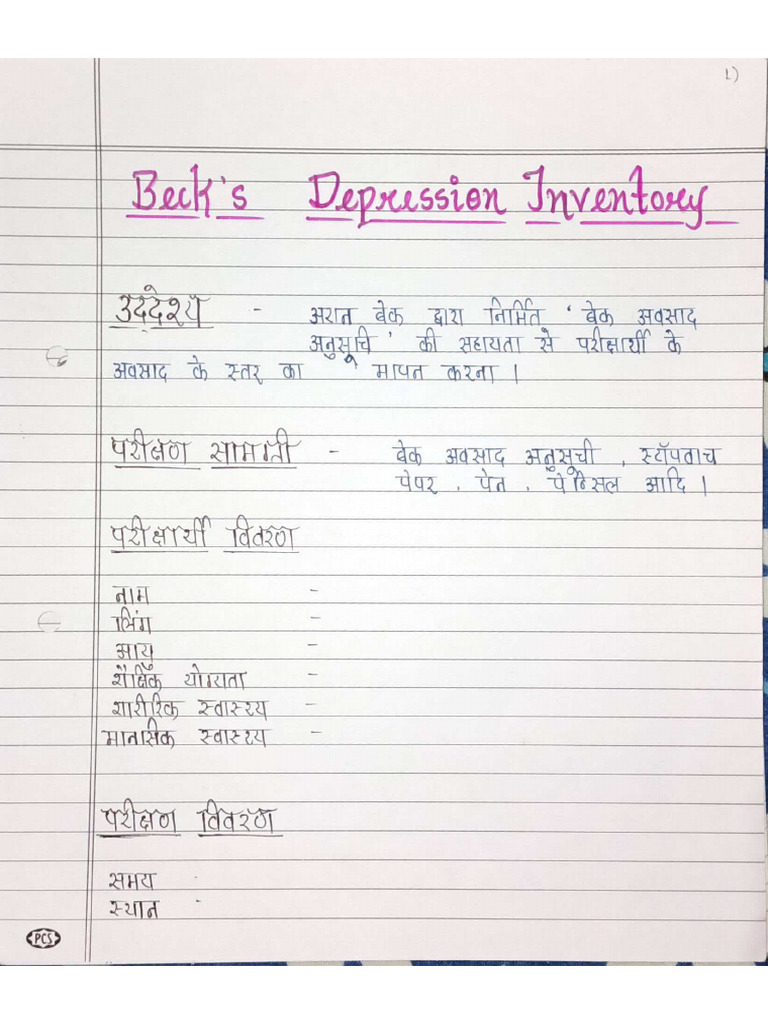 1)
Beck's Depression Inventory
उद्देश्य - अरान बेक द्वारा निर्मित ' बेक अवसाद
अनुसूचि ' की सहायता से परीक्षार्थी के
अवसाद के स्तर का मापन करना ।
परीक्षण सामग्री - बेक अवसाद अनुसूची , स्टॉपवाच
पेपर , पेन , पेन्सिल आदि ।
परीक्षार्थी विवरण
नाम -
लिंग -
आयु -
शैक्षिक योग्यता -
शारीरिक स्वास्थ्य -
मानसिक स्वास्थ्य -
परीक्षण विवरण
समय -
स्थान -
PCS